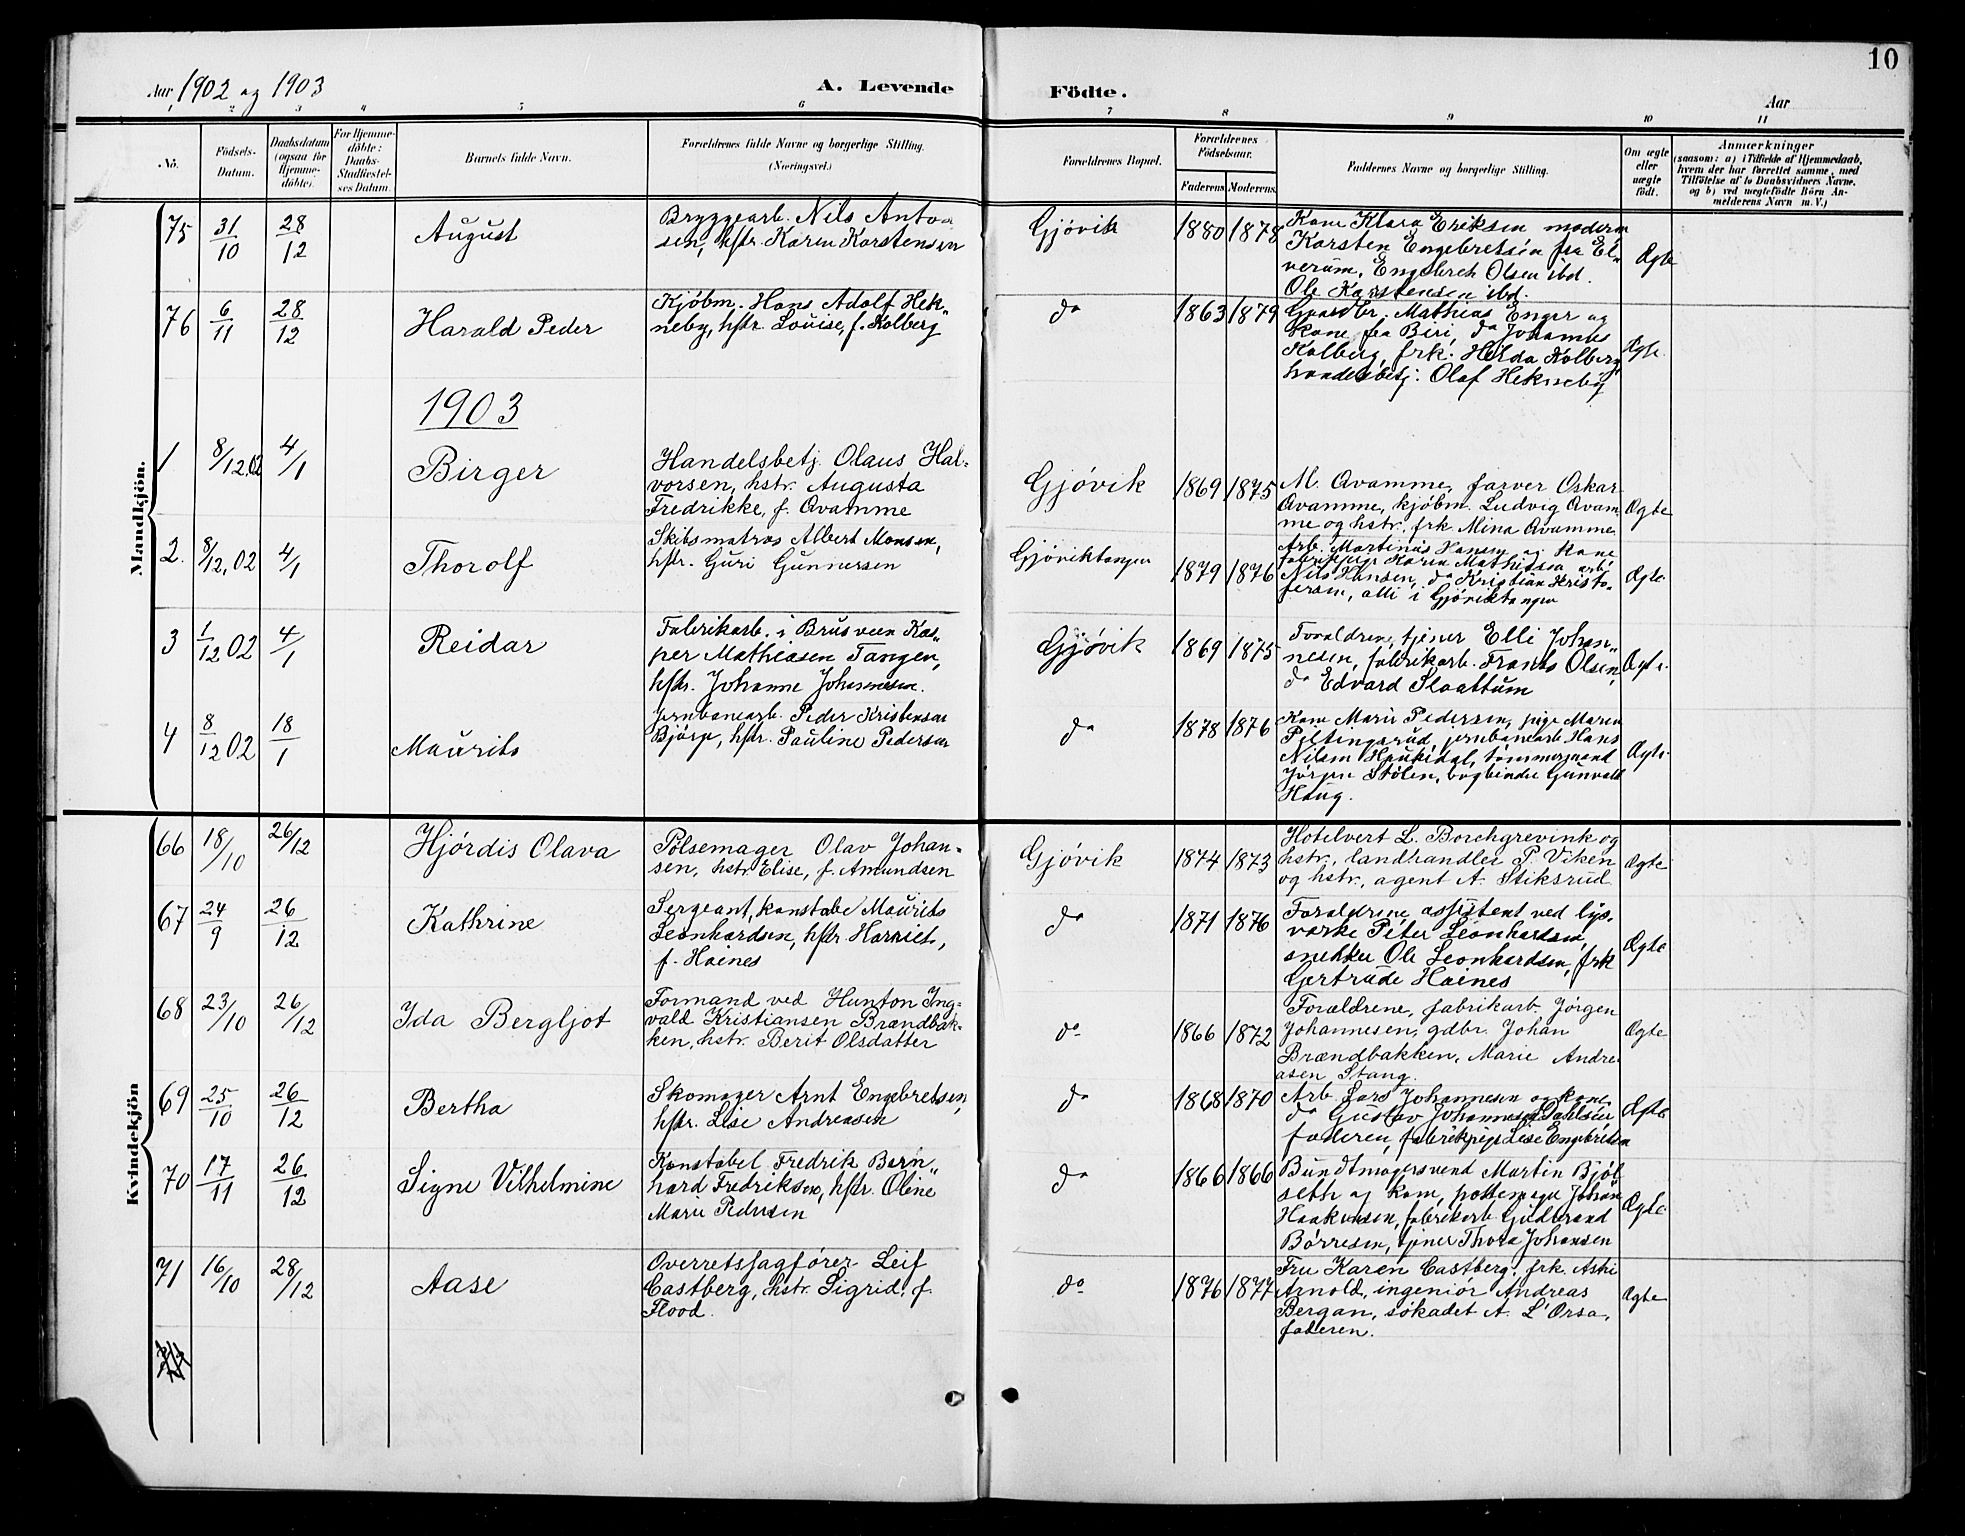 10
Aar 1902 og 1903 A. Levende Födte. Aar
1 2 3 4 5 6 7 8 9 10 11
No. Födsels-Datum. Daabsdatum (ogsaa for Hjemme-döbte). For Hjemme-döbte: Daabs-Stadfæstel-ses Datum. Barnets fulde Navn. Forældrenes fulde Navne og borgerlige Stilling. (Næringsvei.) Forældrenes Bopæl. Forældrenes Födselsaar. Faderens. Moderens. Faddernes Navne og borgerlige Stilling. Om ægte eller uægte födt. Anmærkninger
(saasom: a) i Tilfælde af Hjemmedaab,
hvem der har forrettet samme, med
Tilföielse af to Daabsvidners Navne,
og b) ved uægtefödte Börn An-
melderens Navn m. V.)
Mandkjön.
75 31/10 28/12 August
Bryggearb. Nils Anto-
sen, hstr. Karen Karstensen
Gjövik 1880 1878
Kone Klara Eriksen, moderen
Karsten Engebretsen fra El-
verum, Engebreth Olsen ibd.
Ole Karstensen ibd.
Ægte
76 6/11 28/12 Harald Peder
Kjöbm. Hans Adolf Hek-
neby, hstr. Louise, f. Kolberg
do 1863 1879
Gaardbr. Mathias Enger og
kone fra Biri, do Johannes
Kolberg, frk. Hilda Kolberg
handelsbetj. Olaf Hekneby
Ægte.
1903
1 8/12.02 4/1 Birger
Handelsbetj. Olaus Hal-
vorsen, hstr. Augusta
Fredrikke, f. Avamme
Gjövik 1869 1875
M. Avamme, farver Oskar
Avamme, kjöbm. Ludvig Avam-
me og hstr., frk Mina Avamme.
Ægte
2. 8/12.02 4/1 Thorolf
Skibsmatros Albert Monsen,
hstr. Guri Gunnersen
Gjöviktangen 1879 1876
Arb. Martinus Hansen og kone
fabrikpige Karen Mathisen arb.
Nils Hansen, do Kristian Kristo-
fersen, alle i Gjöviktangen
Ægte.
3 1/12 02 4/1 Reidar
Fabrikarb. i Brusveen Kas-
per Mathiasen Tangen,
hstr. Johanne Johannesen.
Gjövik 1869 1875
Forældrene, tjener Elli Johan-
nesen, fabrikarb. Frants Olsen,
do Edvard Slaattum
Ægte.
4 8/12 02 18/1 Maurits
Jernbanearb. Peder Kristensen
Bjørge, hstr. Pauline Pedersen
do 1878 1876
Kone Marie Pedersen, pige Maren
jernbanearb Hans
Nilsen Haukedal, tömmermand
Jörgen Stölen, bogbinder Gunvald
Haug.
Ægte.
Kvindekjön
66 18/10 26/12 Hjördis Olava
Pölsemager Olav Johan-
sen, hstr. Elise, f. Amundsen
Gjövik 1874 1873
Hotelvert L. Borchgrevink og
hstr., landhandler P. Viken
og hstr., agent A. Stiksrud
Ægte
67 24/9 26/12 Kathrine
Sergeant, konstabel Maurits
Leonhardsen, hstr Harriet,
f. Haines
do 1871 1876
Forældrene, assistent ved lys-
værke Peter Leonhardsen,
snekker Ole Leonhardsen, frk
Gertrude Haines
Ægte
68 23/10 26/12 Ida Bergljot
Formand ved Hunton Ing-
vald Kristiansen Brændbak-
ken, hstr. Berit Olsdatter
do 1866 1872
Forældrene, fabrikarb. Jörgen
Johannesen, gdbr. Johan
Brændbakken, Marie Andre-
asen Stang.
Ægte
69 25/10 26/12 Bertha
Skomager Arnt Engebretsen,
hstr. Lise Andreasen
do 1868 1870
Arb. Lars Johannesen og kone,
do Gustav Johannesen
faderen, fabrikpige Lise Engebretsen
Ægte
70 17/11 26/12 Signe Vilhelmine
Konstabel Fredrik Bern-
hard Fredriksen, hstr. Oline
Marie Pedersen
do 1866 1866
Bundtmagersvend Martin Bjöl-
seth og kone, pottemager Johan
Haakensen, fabrikarb Gudbrand
Börresen, tjener Thora Johansen
Ægte.
71 16/10 28/12 Aase
Overretssagförer Leif
Castberg, hstr. Sigrid f.
Flood.
do 1876 1877
Fru Karen Castberg, frk. Aski
Arnold, ingeniör Andreas
Bergan, sökadet A. L'Orsa,
faderen.
Ægte